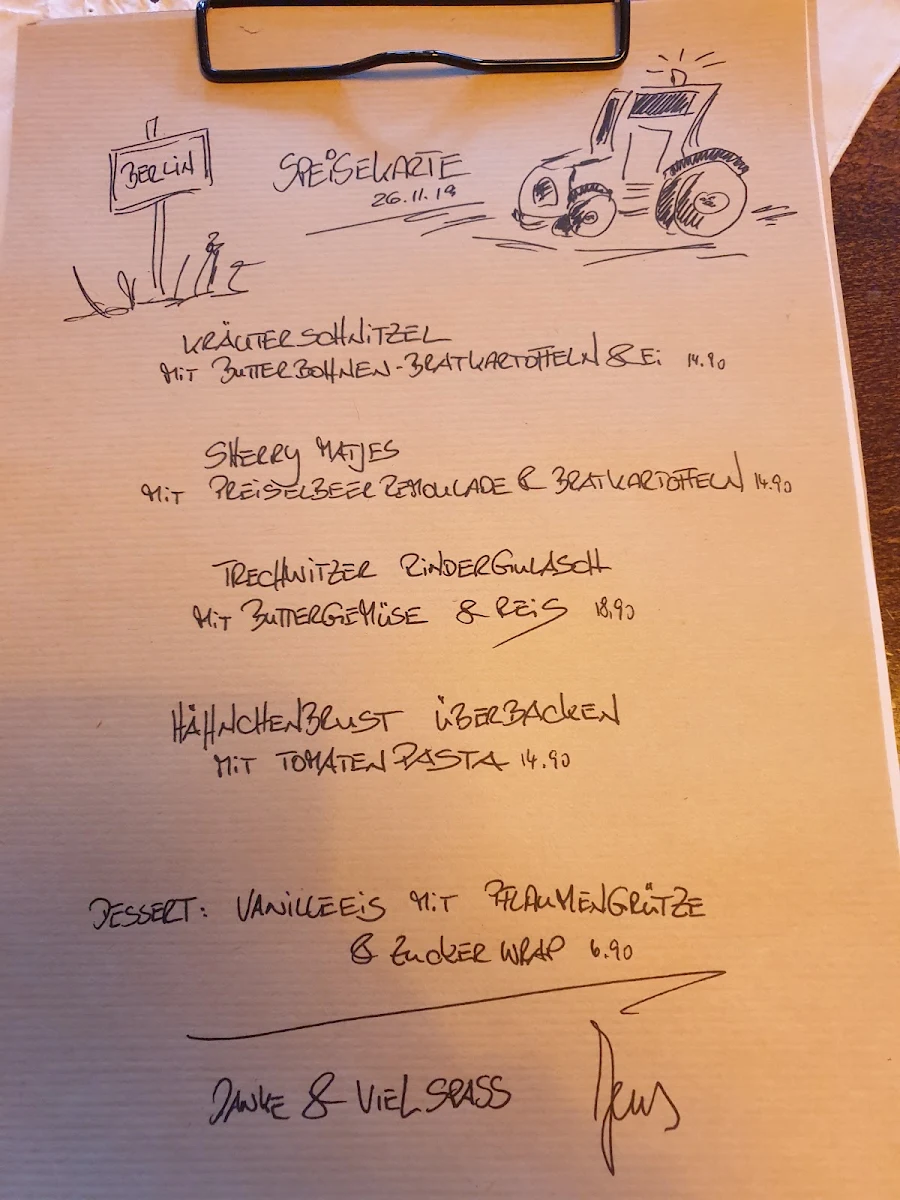 BERLIN
SPEISEKARTE
26.11.19
KRÄUTERSCHNITZEL
MIT BUTTERBOHNEN-BRATKARTOFFELN & EI 14.90
SHERRY MATJES
MIT PREISELBEER REMOULADE & BRATKARTOFFELN 14.90
TRECHWITZER RINDERGULASCH
MIT BUTTERGEMÜSE & REIS 18.90
HÄHNCHENBRUST ÜBERBACKEN
MIT TOMATEN PASTA 14.90
DESSERT: VANILLEEIS MIT PFLAUMENGRÜTZE
& ZUCKER WRAP 6.90
DANKE & VIEL SPASS